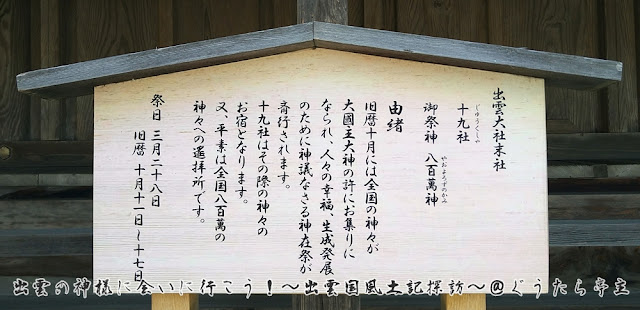 出雲大社末社
十九社
じゅうくしゃ
御祭神 八百萬神
やおよろずのかみ
由緒
旧暦十月には全国の神々が
大國主大神の許にお集りに
なられ、人々の幸福、生成発展
のために神議なさる神在祭が
斎行されます。
十九社はその際の神々の
お宿となります。
又、平素は全国八百萬の
神々への遥拝所です。
祭日 三月二十八日
旧暦 十月十一日〜十七日
出雲の神様に会いに行こう！～出雲国風土記探訪～@ぐうたら亭主